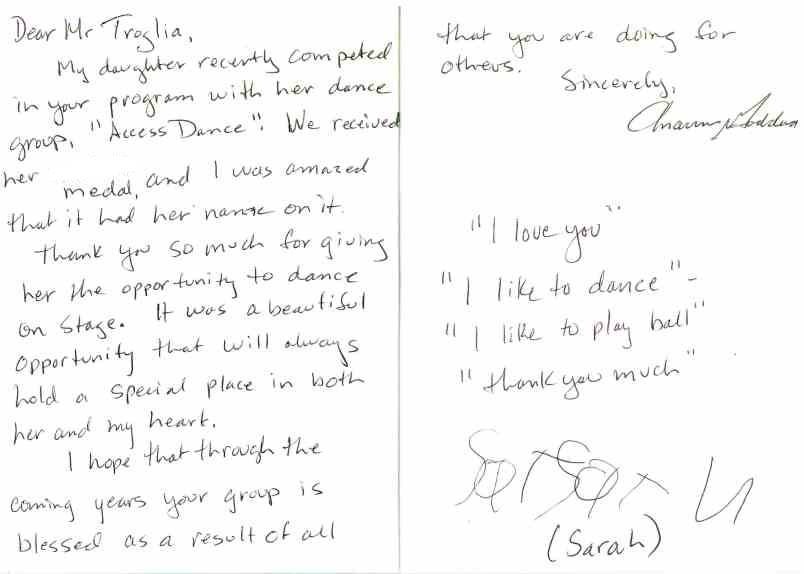 Dear Mr Troglia,
My daughter recently competed
in your program with her dance
group, "Access Dance". We received
her medal, and I was amazed
that it had her name on it.
Thank you so much for giving
her the opportunity to dance
on stage. It was a beautiful
opportunity that will always
hold a special place in both
her and my heart.
I hope that through the
coming years your group is
blessed as a result of all
that you are doing for
others.
Sincerely,
"I love you"
"I like to dance"-
"I like to play ball"
"thank you much"
(Sarah)